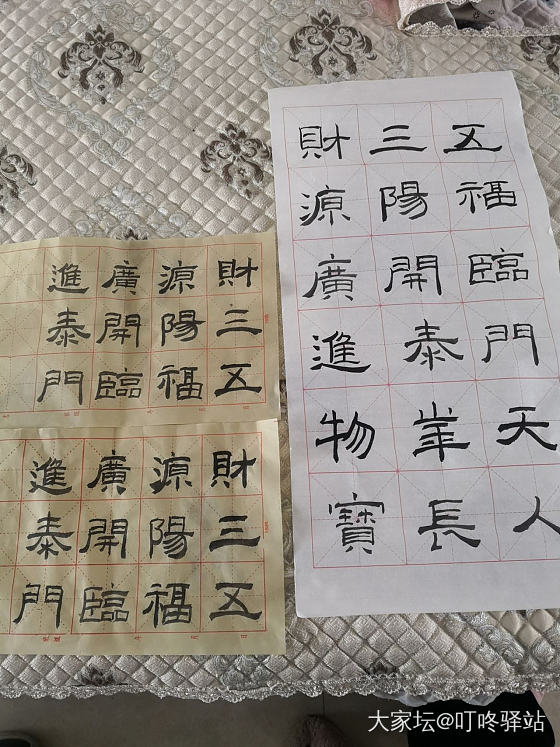 財源廣進
三陽開泰
五福臨門
財源廣進
三陽開泰
五福臨門
財源廣進物寶
三陽開泰崋長
五福臨門天人
大家坛@叮咚驿站